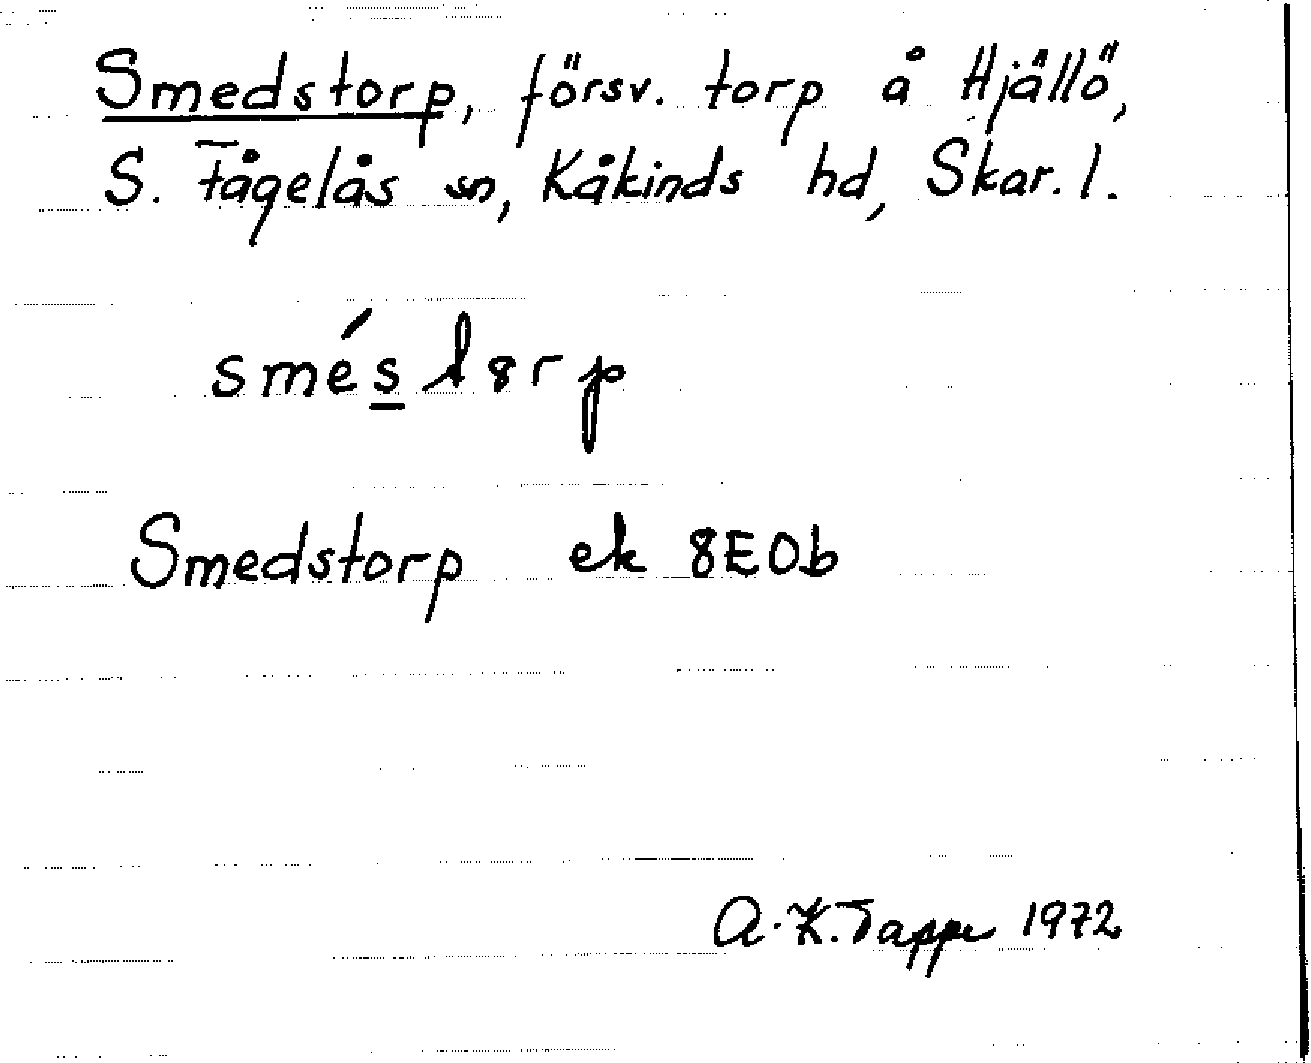 Smedstorp, försv. torp å Hjällö,
S. Fågelås sn, Kåkinds hd, Skar. l.
Smedstorp ek 8E0b
A.-K. Tappe 1972